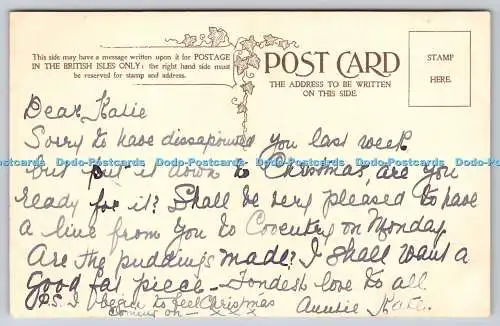 This side may have a message written upon it for POSTAGE
IN THE BRITISH ISLES ONLY: the right hand side must
be reserved for stamp and address.
POST CARD
THE ADDRESS TO BE WRITTEN
ON THIS SIDE.
STAMP
HERE.
Dear Katie
Sorry to have dissapointed you last week
but put it down to Christmas, are you
ready for it? Shall be very pleased to have
a line from you to Coventry on Monday.
Are the puddings made? I shall want a
Good fat piece - Fondest love to all
P.S. I begin to feel Christmas
coming on - x x x
Auntie Kate.
Dodo-Postcards Dodo-Postcards Dodo-Postcards Dodo-Postcards Dodo-Postcards Dodo-Postcards